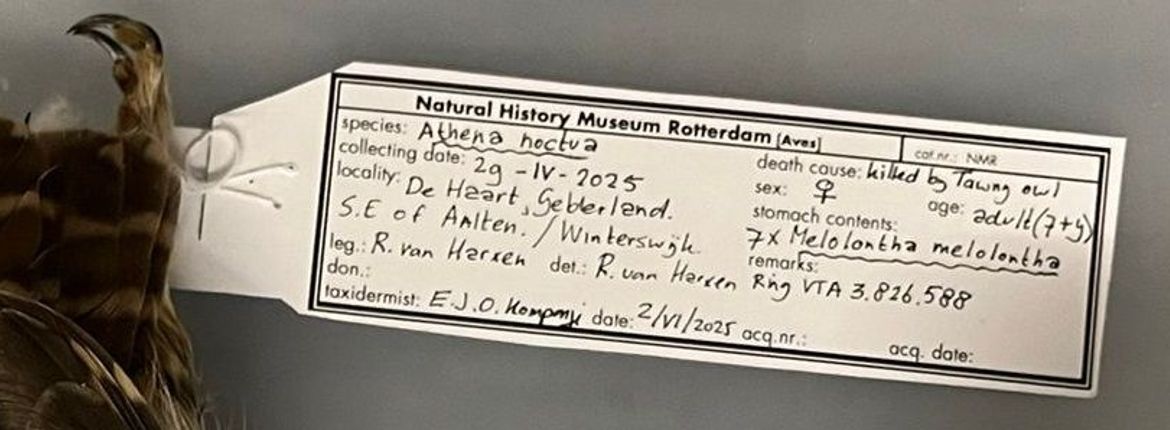 Natural History Museum Rotterdam [Aves]
cat.nr.: NMR
species: Athena noctua
collecting date: 29-IV-2025
locality: De Haart, Gelderland.
S.E of Aalten. / Winterswijk.
leg.: R. van Harxen det.: R. van Harxen
don.:
taxidermist: E.J.O. Kompanje date: 2/VI/2025 acq.nr.:
death cause: killed by Tawny owl
sex: ♀ age: adult (7+y)
stomach contents:
7x Melolontha melolontha
remarks:
Ring VTA 3.826.588
acq. date: